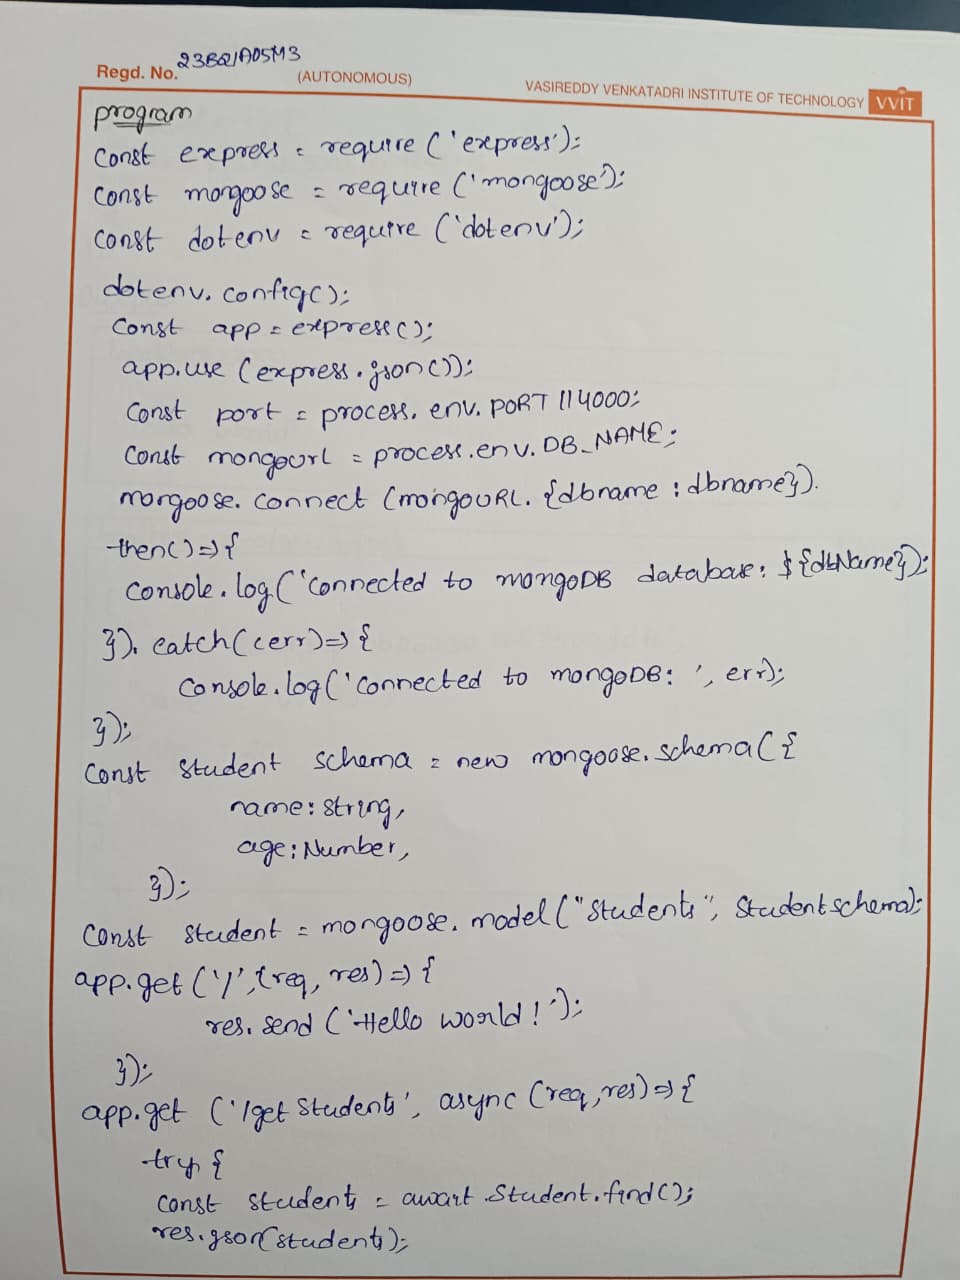 Regd. No. 23BQ1A05M3
(AUTONOMOUS)
VASIREDDY VENKATADRI INSTITUTE OF TECHNOLOGY VVIT
program
const express = require ('express');
const mongoose = require ('mongoose');
const dotenv = require ('dotenv');
dotenv. config();
const app = express();
app.use (express.json());
const port = process. env. PORT ||4000;
const mongourl = process.env. DB_NAME;
mongoose. connect (mongoURL. {dbname : dbname}).
then()=>{
console.log('connected to mongoDB database: ${dbName});
}). catch((err)=>{
console.log('connected to mongoDB: ', err);
});
const student schema = new mongoose.schema({
name: string,
age: Number,
});
const student = mongoose. model ("students", studentschema);
app.get ('/', (req, res) => {
res. send ('Hello world!');
});
app.get ('/get students', async (req,res)=>{
try {
const students = await Student.find();
res.json(students);